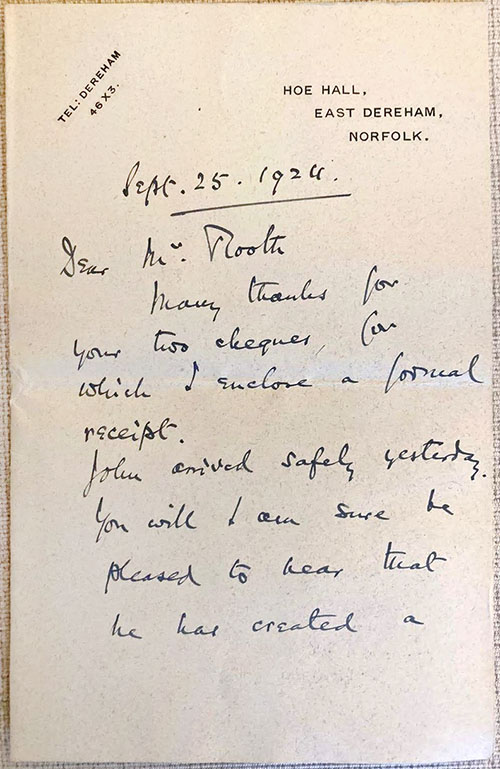 TEL: DEREHAM
46 X3.
HOE HALL,
EAST DEREHAM,
NORFOLK.
Sept. 25. 1924.
Dear Mr. Rooth
Many thanks for
your two cheques, for
which I enclose a formal
receipt.
John arrived safely yesterday.
You will I am sure be
pleased to hear that
he has created a